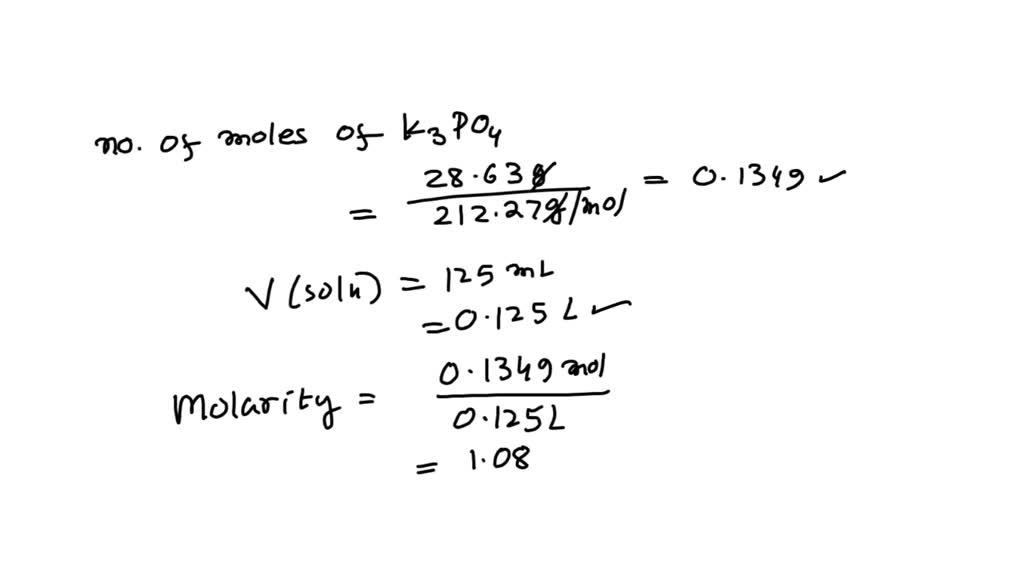 no. of moles of K3PO4
= 28.63g / 212.27g/mol = 0.1349 ✓
V (soln) = 125 mL
= 0.125 L ✓
Molarity = 0.1349 mol / 0.125L
= 1.08